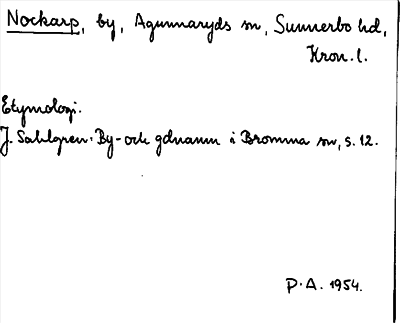 Nockarp, by, Agunnaryds sn, Sunnerbo hd,
Kron. l.
Etymologi.
J. Sahlgren: By- och gdnamn i Bromma sn, s. 12.
P. A. 1954.